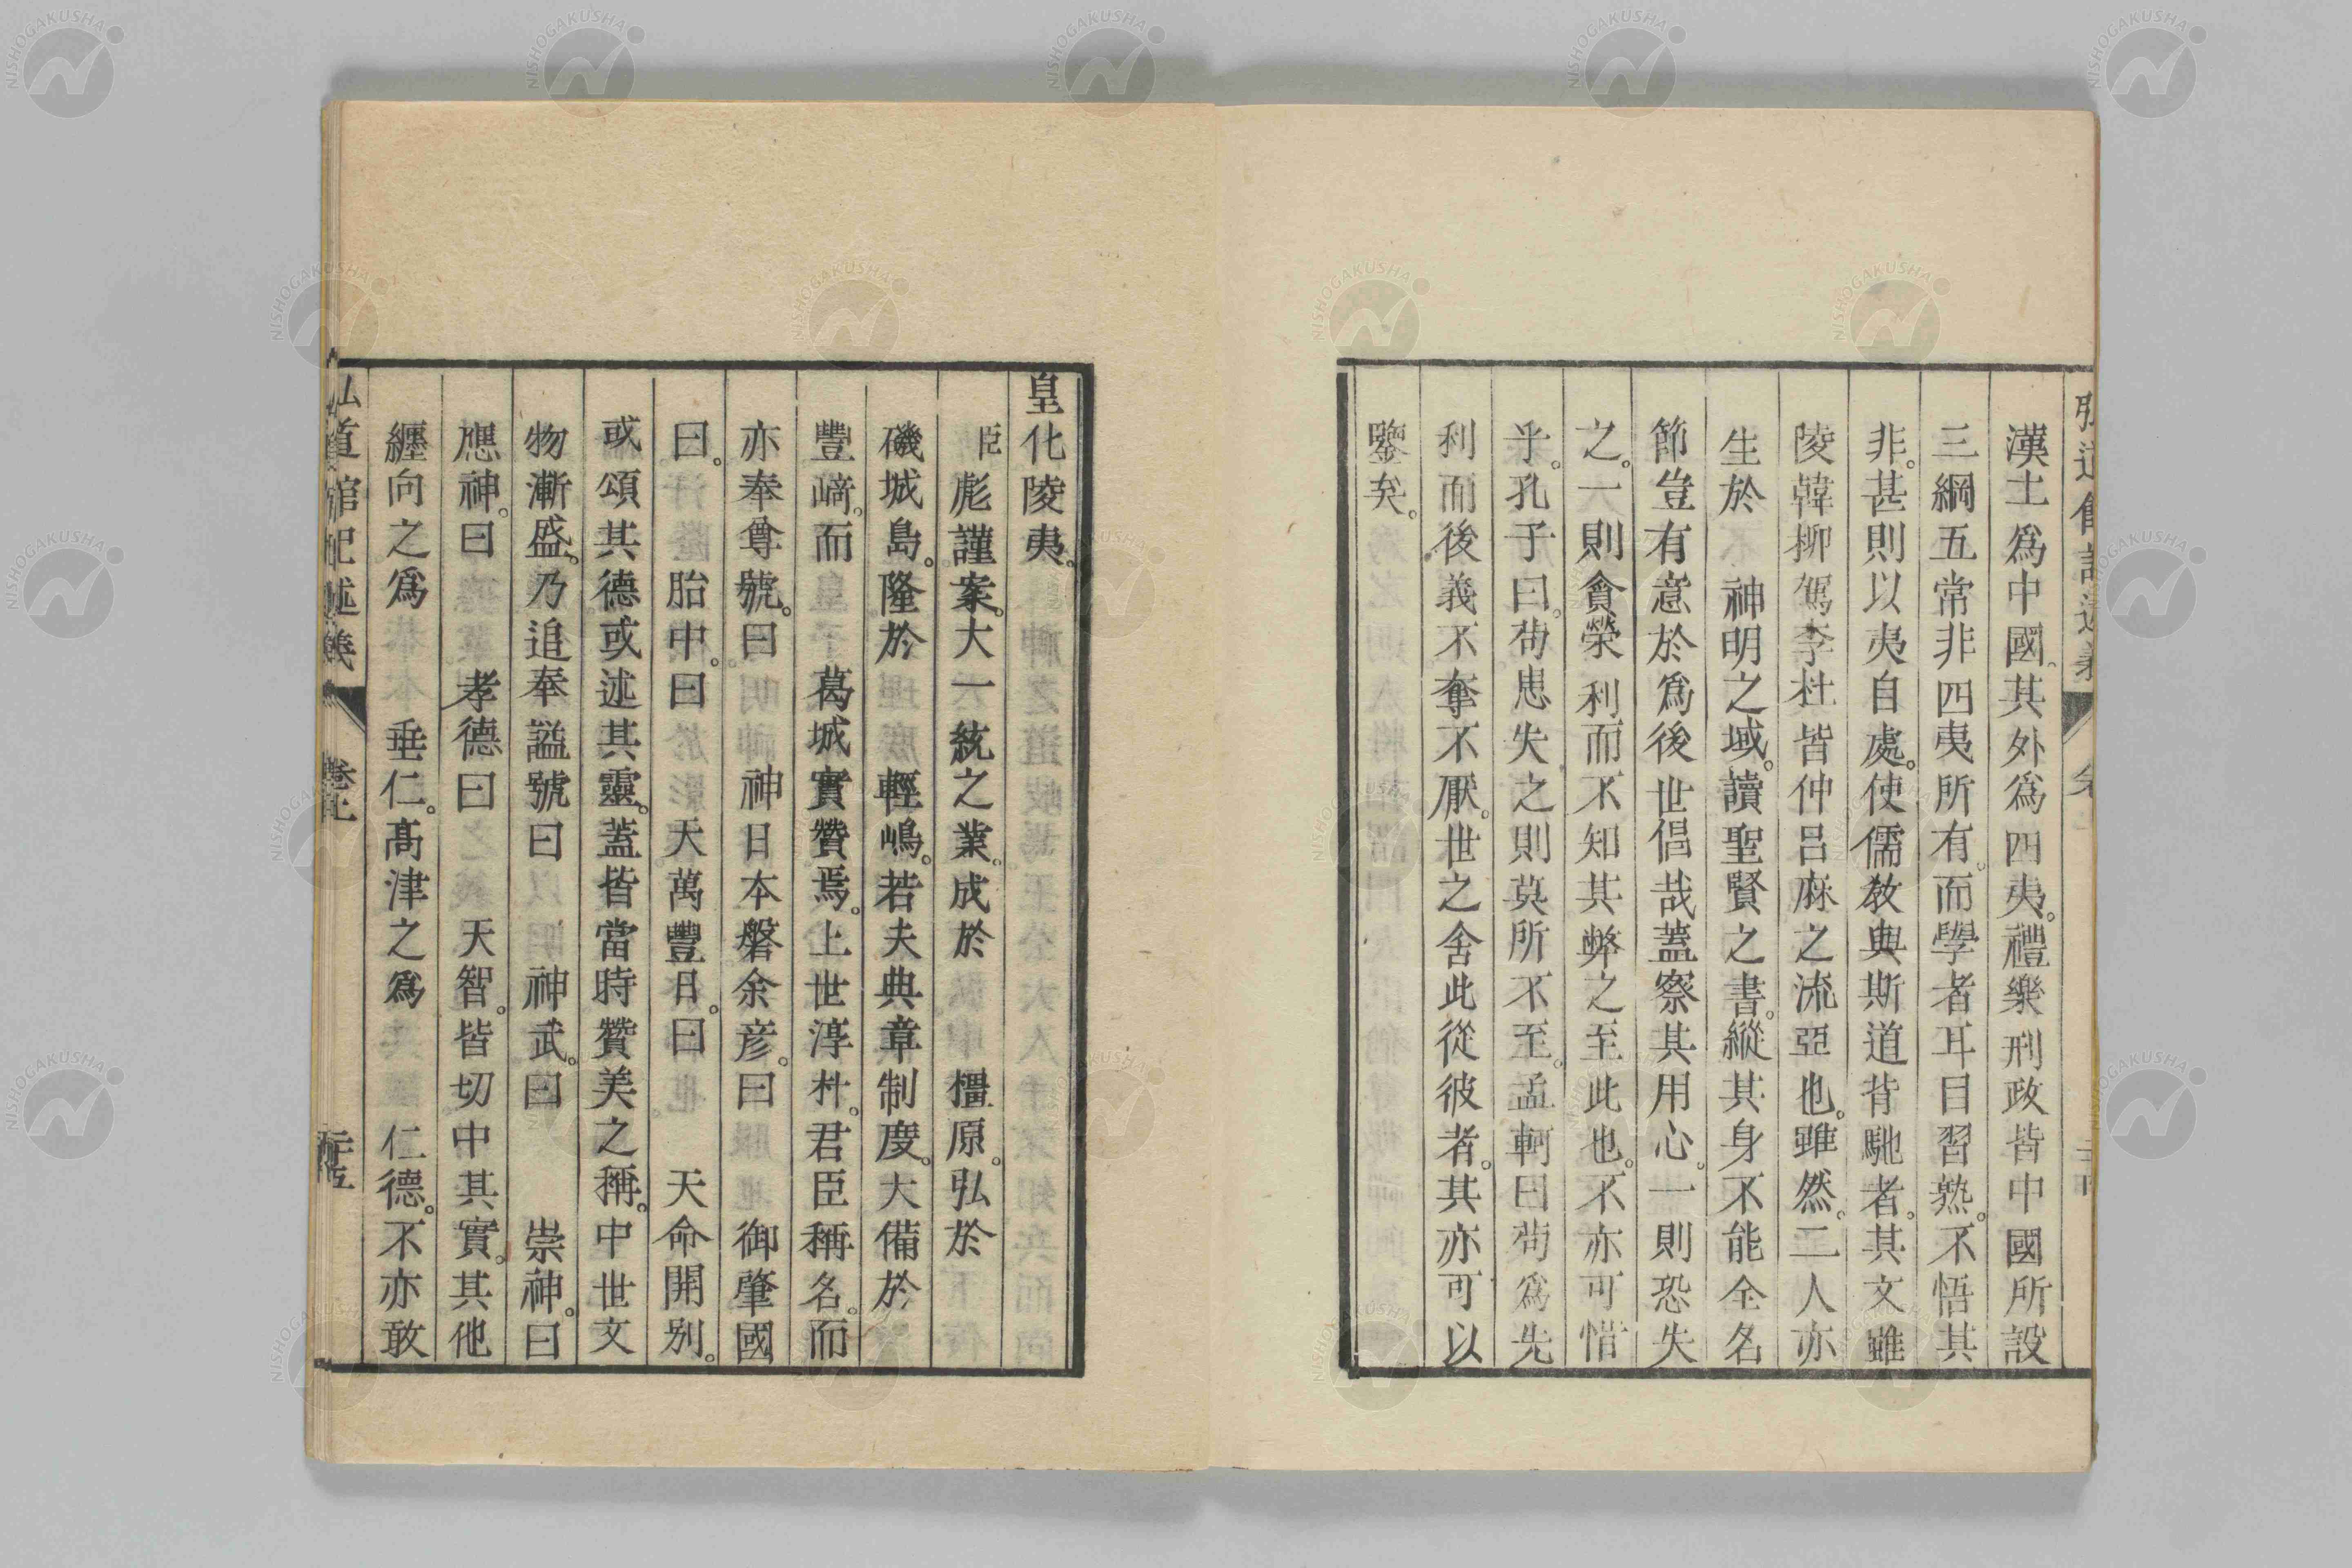 漢土爲中國。其外爲四夷。禮樂刑政皆中國所設
三綱五常非四夷所有。而學者耳目習熟。不悟其
非。甚則以夷自處。使儒教典斯道背馳者。其文雖
陵韓柳駕李杜皆仲呂麻之流亞也。雖然。二人亦
生於　神明之域。讀聖賢之書。縱其身不能全名
節豈有意於爲後世倡哉蓋察其用心。一則恐失
之。一則貪榮利而不知其弊之至此也。不亦可惜
乎。孔子曰。苟患失之則莫所不至。孟軻曰苟爲先
利而後義不奪不厭。世之舍此從彼者。其亦可以
鑒矣。
皇化陵夷。
臣彪謹案。大一統之業。成於　橿原。弘於
磯城島。隆於　輕嶋。若夫典章制度。大備於
豐﨑。而　葛城實贊焉。上世淳朴。君臣稱名。而
亦奉尊號。曰　神日本磐余彦。曰　御肇國
曰。　胎中。曰　天萬豐日。曰　天命開別。
或頌其德或述其靈。蓋皆當時贊美之稱。中世文
物漸盛。乃追奉謚號曰　神武。曰　崇神。曰
應神。曰　孝德曰　天智。皆切中其實。其他
纏向之爲　垂仁。高津之爲　仁德。不亦敢
弘道館記述義　卷上
NISHOGAKUSHA